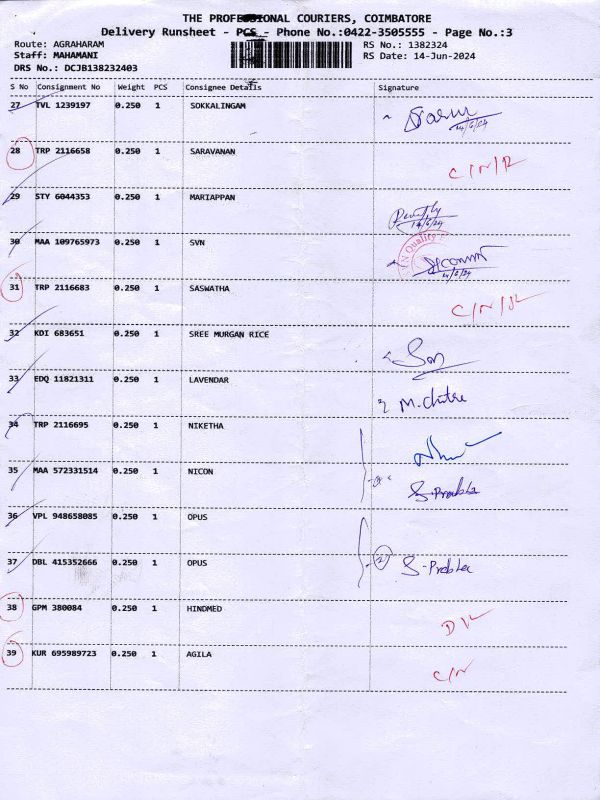 THE PROFESSIONAL COURIERS, COIMBATORE
Delivery Runsheet - PCS - Phone No.:0422-3505555 - Page No.:3
Route: AGRAHARAM RS No.: 1382324
Staff: MAHAMANI RS Date: 14-Jun-2024
DRS No.: DCJB138232403
S No Consignment No Weight PCS Consignee Details Signature
27 TVL 1239197 0.250 1 SOKKALINGAM
14/6/24
28 TRP 2116658 0.250 1 SARAVANAN
C/N/R
29 STY 6044353 0.250 1 MARIAPPAN
14/6/24
30 MAA 109765973 0.250 1 SVN
Quality
31 TRP 2116683 0.250 1 SASWATHA
C/N/R
32 KDI 683651 0.250 1 SREE MURGAN RICE
33 EDQ 11821311 0.250 1 LAVENDAR
M. Chitra
34 TRP 2116695 0.250 1 NIKETHA
35 MAA 572331514 0.250 1 NICON
S-Prabha
36 VPL 948658085 0.250 1 OPUS
37 DBL 415352666 0.250 1 OPUS
2 S-Prabha
38 GPM 380084 0.250 1 HINDMED
39 KUR 695989723 0.250 1 AGILA
C/N